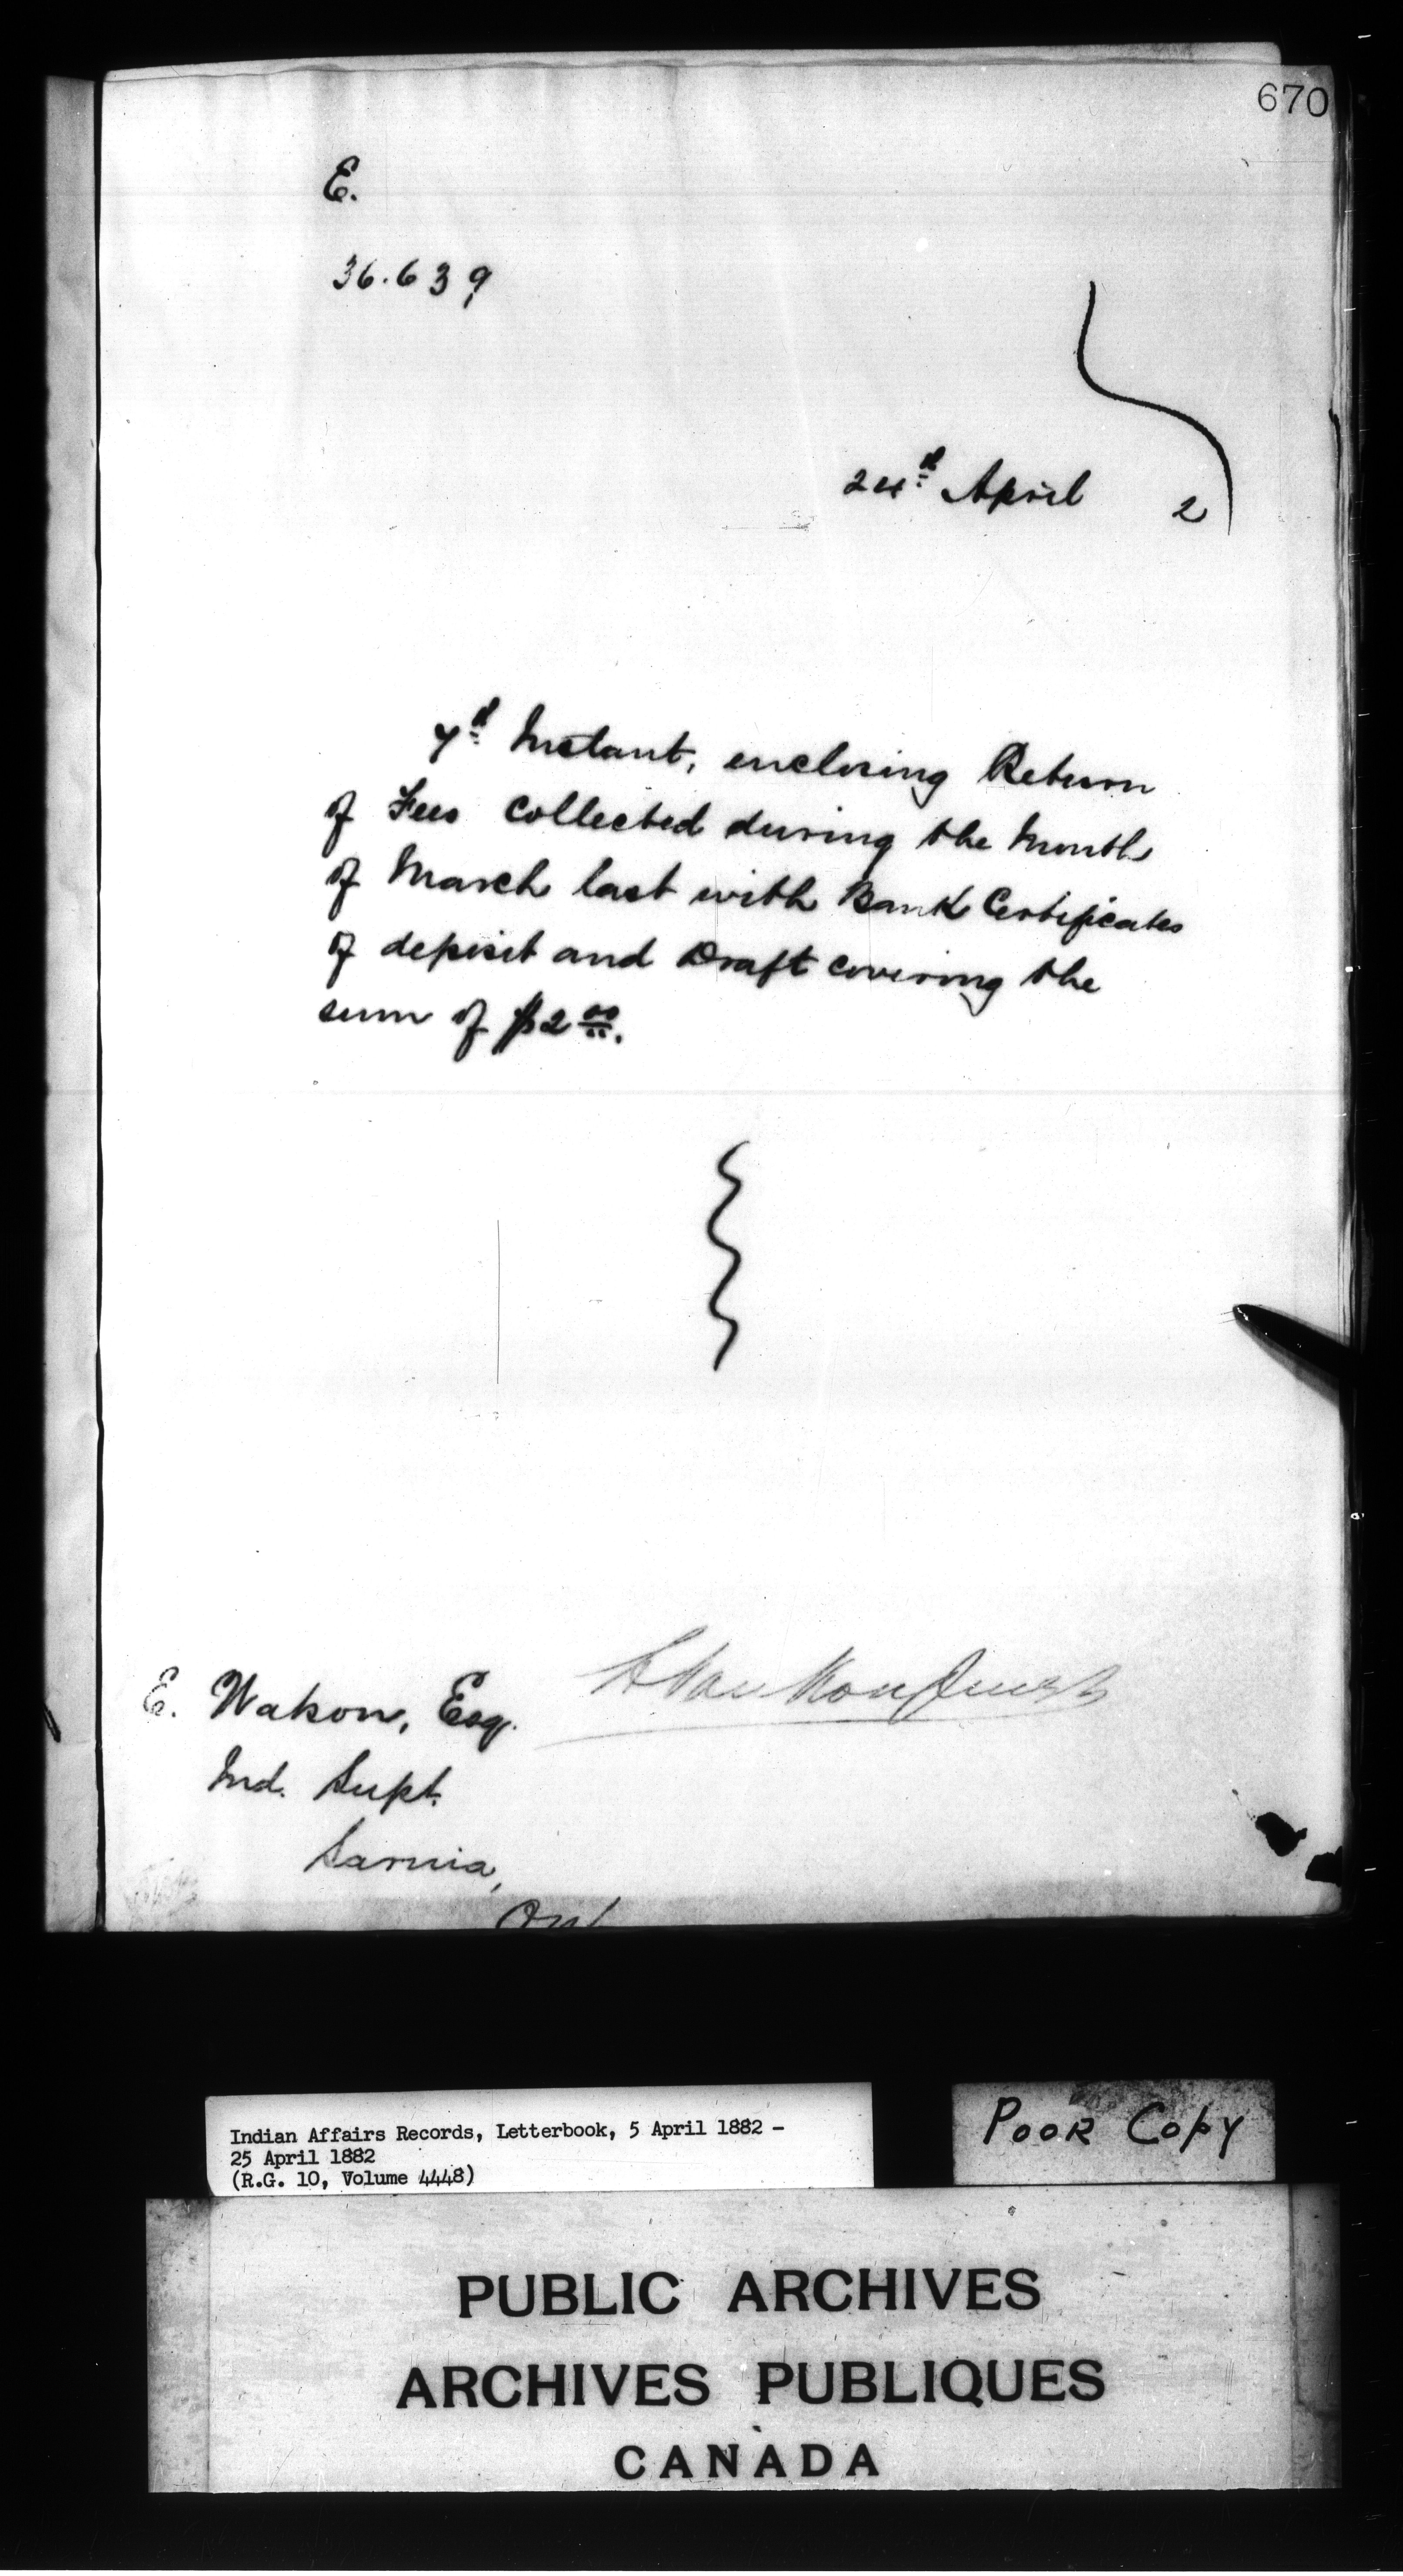 670
E.
36.639
24th April 2
7th Instant, enclosing Return
of Fees collected during the Month
of March last with Bank Certificates
of deposit and Draft covering the
sum of $2 00.
E. Watson, Esq.
L VanKoughnet
Ind. Supt.
Sarnia,
Ont
Indian Affairs Records, Letterbook, 5 April 1882 -
25 April 1882
(R.G. 10, Volume 4448)
POOR COPY
PUBLIC ARCHIVES
ARCHIVES PUBLIQUES
CANADA